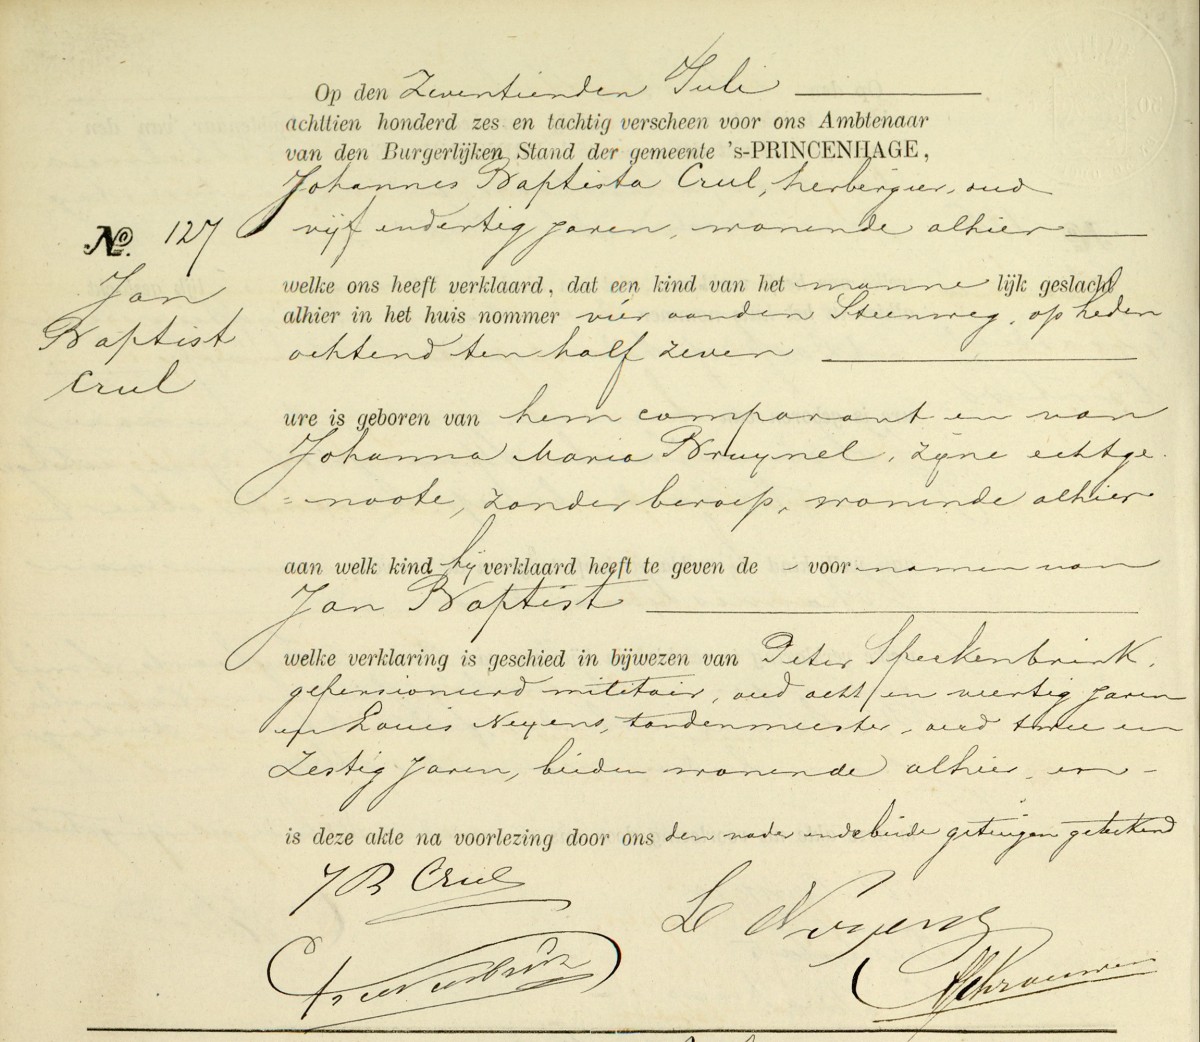 Op den Zeventienden Juli
achttien honderd zes en tachtig verscheen voor ons Ambtenaar
van den Burgerlijken Stand der gemeente 's-PRINCENHAGE,
Johannes Baptista Crul, herbergier, oud
vijf en dertig jaren, wonende alhier
No. 127
Jan
Baptist
Crul
welke ons heeft verklaard, dat een kind van het manne lijk geslacht
alhier in het huis nommer vier aan den Steenweg, op heden
ochtend ten half zeven
ure is geboren van hem comparant en van
Johanna Maria Bruynel, zijne echtge
= noote, zonder beroep, wonende alhier
aan welk kind hij verklaard heeft te geven de - voor namen van
Jan Baptist
welke verklaring is geschied in bijwezen van Peter Speekenbrink,
gepensioneerd militair, oud acht en veertig jaren
en Louis Neyens, tondenmeester, oud twee en
zestig jaren, beiden wonende alhier, en -
is deze akte na voorlezing door ons den vader en de beide getuigen geteekend
J B Crul
L Neyens